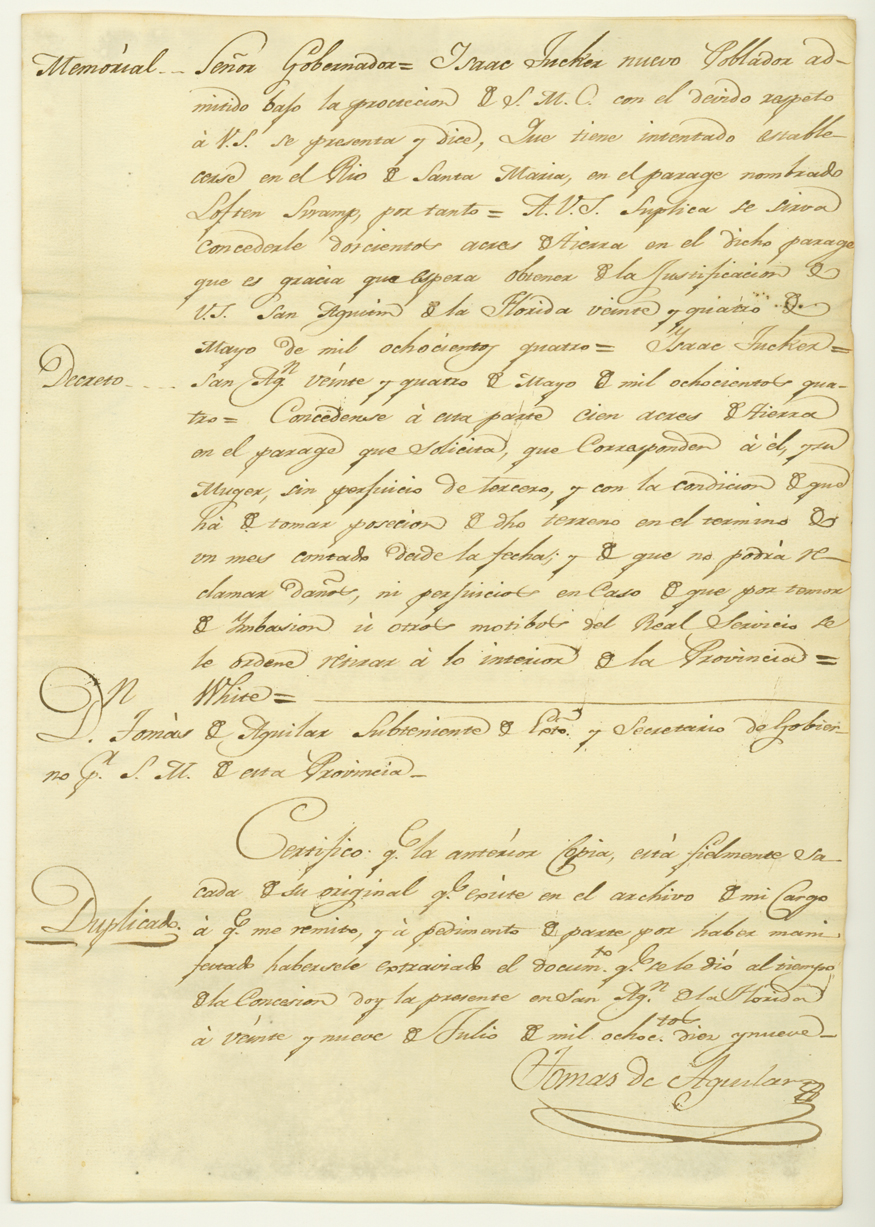 Memórial -- Señór Gobernador= Ysaac Tucker nuevo Poblador ad-
mitido bajo la proctecion de S. M. C. con el devido respeto
à V.S. se presenta y dice, Que tiene intentado estable-
cerse en el Rio de Santa Maria, en el parage nombrado
Loften Swamp, por tanto= A. V. S. suplica se sirva
concederle doscientos acres de tierra en el dicho parage
que es gracia que espera obtener de la Justificacion de
V.S. San Agustin de la Florida veinte y quatro de
Mayo de mil ochocientos quatro= Ysaac Tucker=
Decreto---- San Agn veinte y quatro de Mayo de mil ochocientos qua-
tro= Concedense à esta parte cien acres de tierra
en el parage que solicita, que Corresponden à él, y su
Muger, sin perjuicio de tercero, y con la condicion de que
há de tomar posecion de dho terreno en el termino de
un mes contado desde la fecha; y de que no podrà re-
clamar daños, ni perjuicios en Caso de que por temor
de Imbasion ù otros motibos del Real Servicio se
le ordene retirar à lo interior de la Provincia=
White=
Dn. Tomàs de Aguilar Subteniente de Exto. y Secretario de Gobier-
no pr. S. M. de esta Provincia-
Certifico: qe. la anterior Copia, està fielmente sa-
cada de su original qe. existe en el archivo de mi Cargo
Duplicado. à qe. me remito, y à pedimento de parte por haber mani-
festado habersele extraviado el documto. qe. se le dió al tiempo
de la Concesion doy la presente en San Agn. de la Florida
à veinte y nueve de Julio de mil ochoc.tos diez y nueve-
Tomas de Aguilar